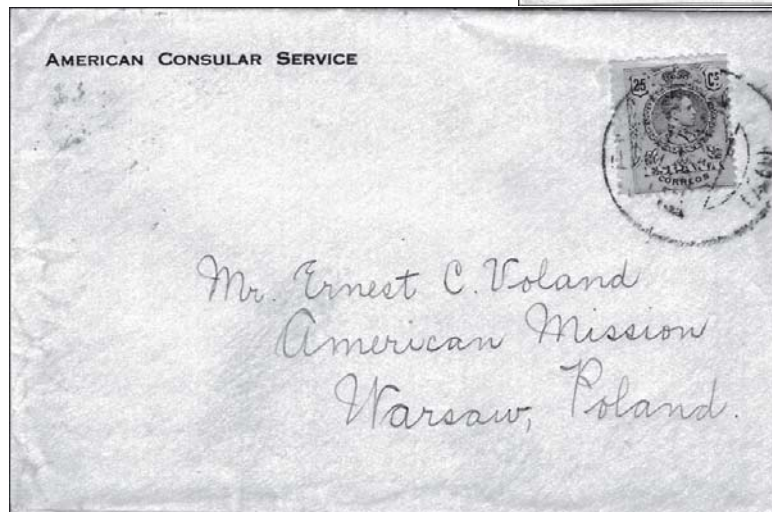 AMERICAN CONSULAR SERVICE
25 Cs
CORREOS
Mr. Ernest C. Voland
American Mission
Warsaw, Poland.